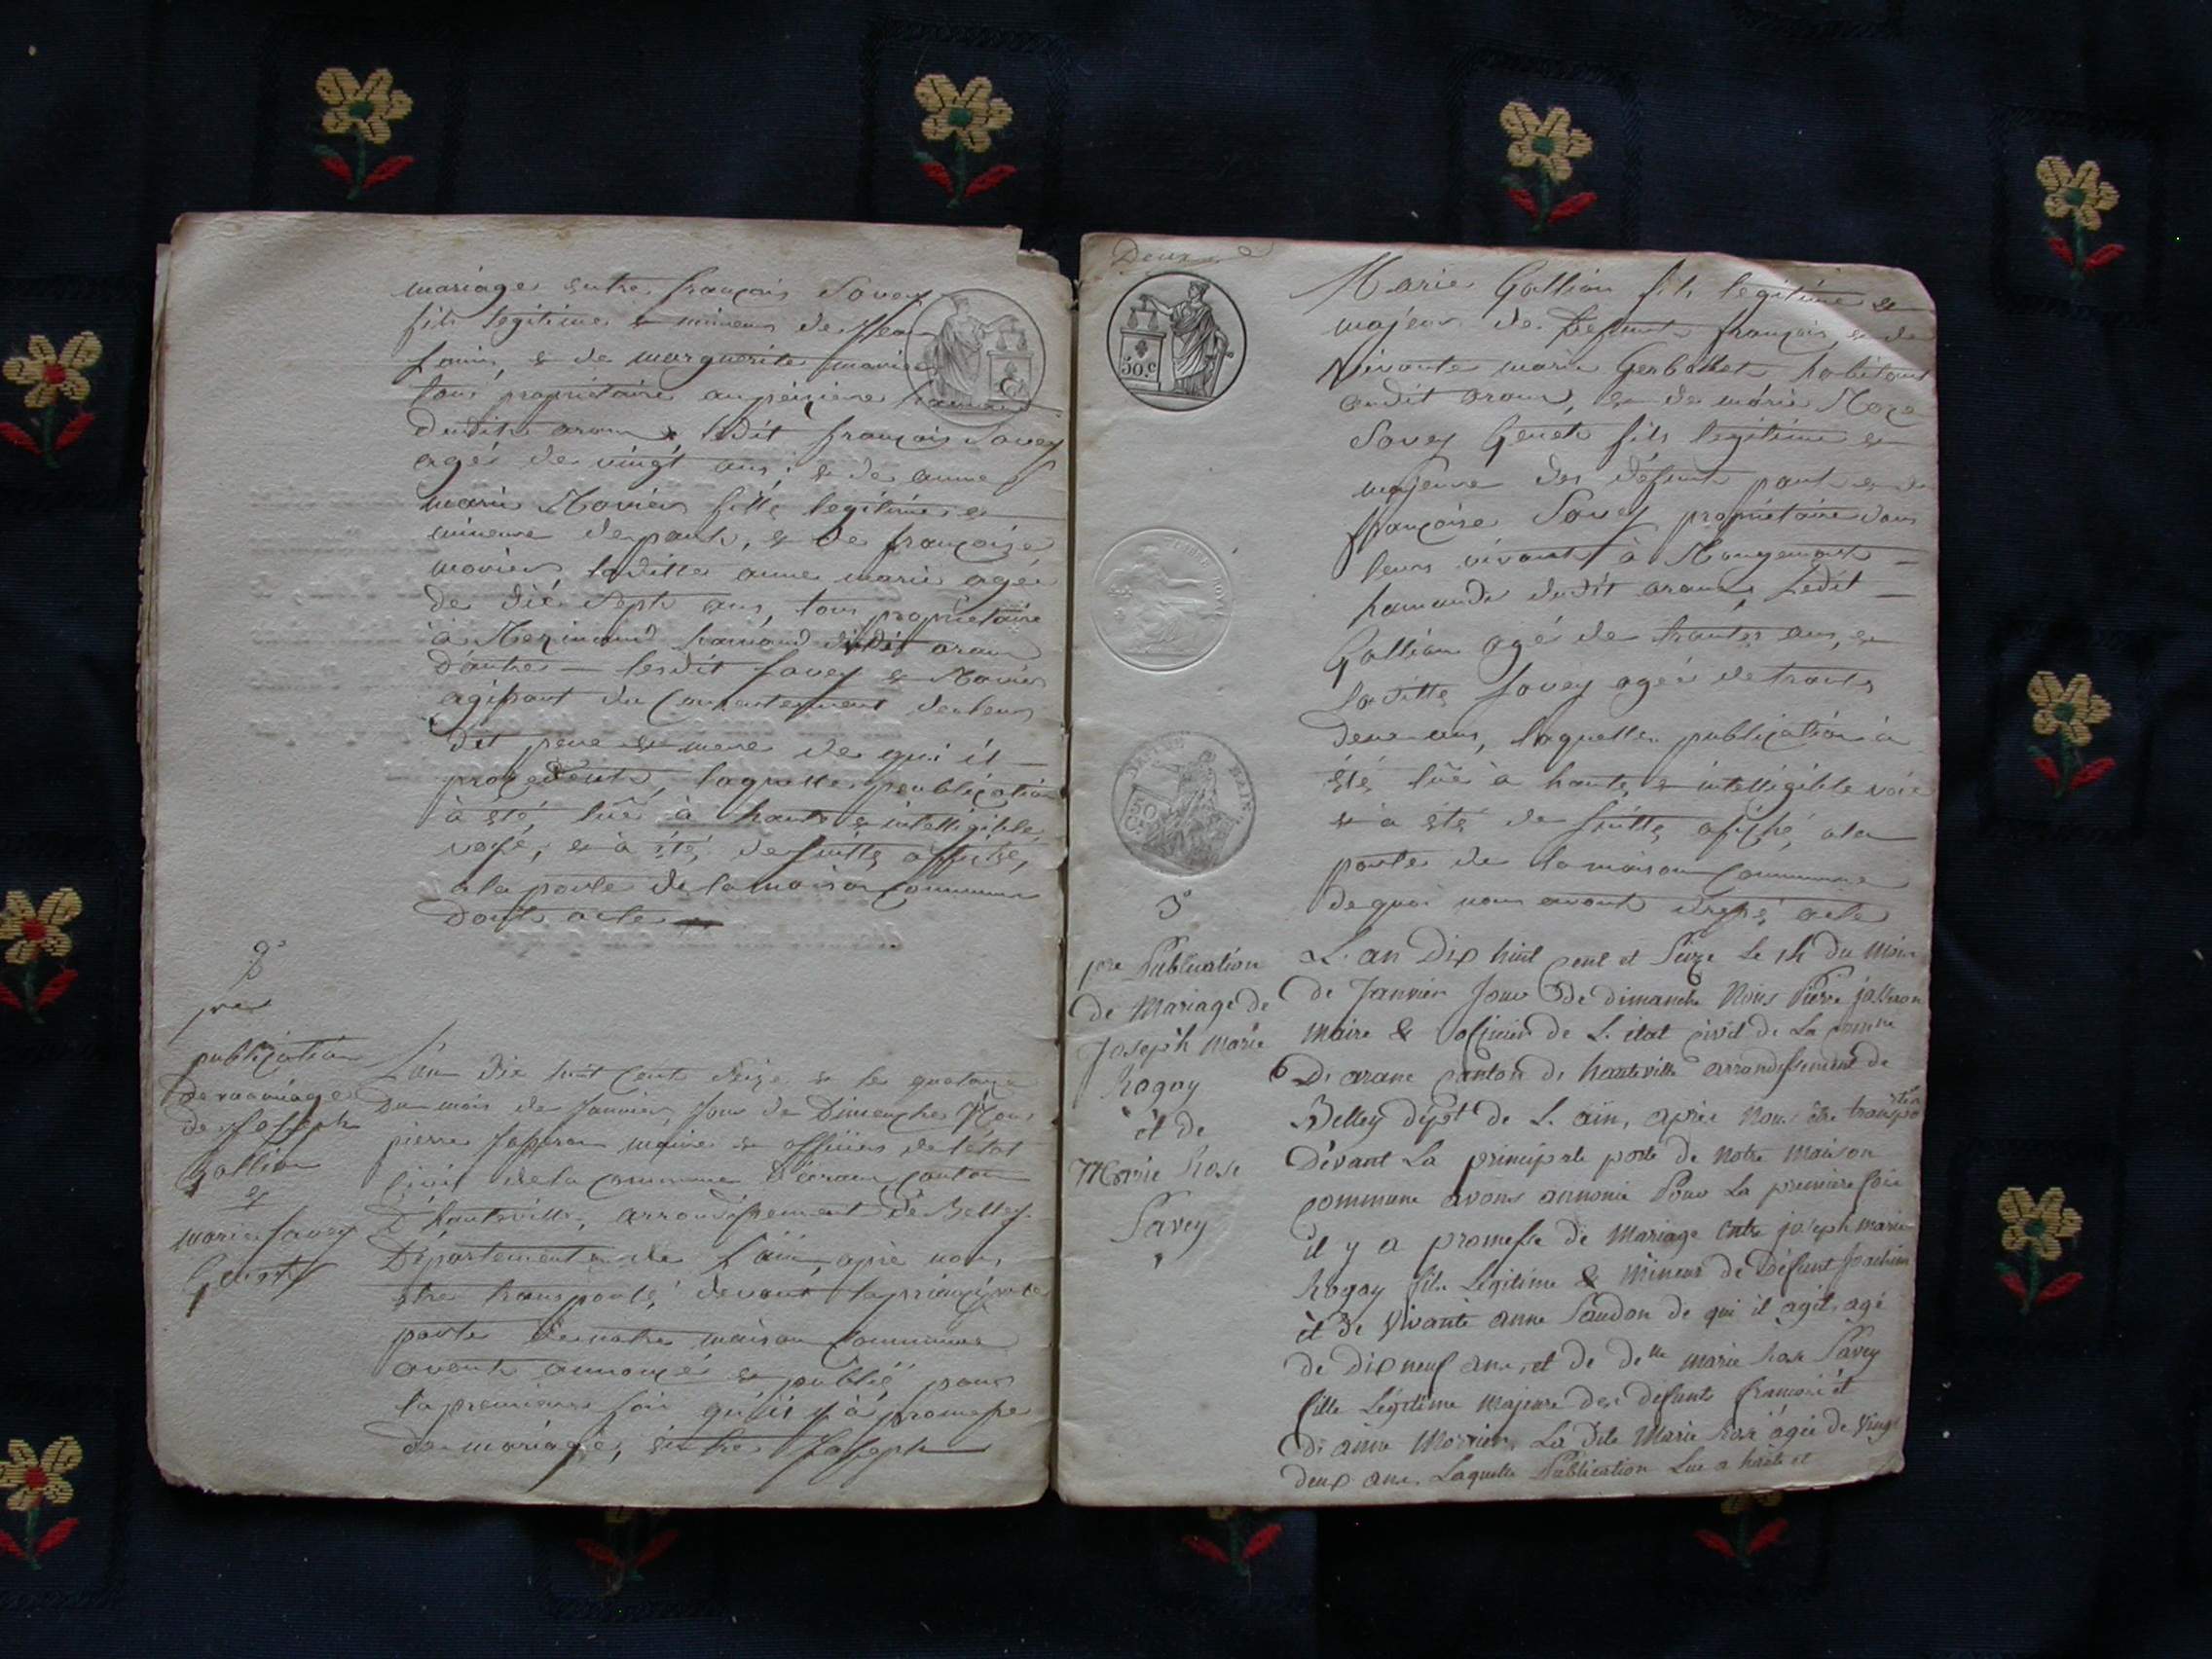 mariage entre françois Savey
fils legitime & mineur de Jean
Louis, & de marguerite mavier
tous propriétaire
dudit aran, ledit françois Savey
agé de vingt ans, & de anne
marie Movier fille legitime &
mineure de paul, & de françoise
movier, laditte anne marie agée
de dix sept ans, tous propriétaire
à hamaud dudit aran
d'autre — lesdit Savey & Movier
agissant du consentement de leurs
dit pere & mere de qui il
procedent, laquelle publication
à été lüe à haute & intelligible
voye, & à été de suitte affiché,
a la porte de la maison commune
dont acte
2e
pre
publication
de mariage
de Joseph
gallion
&
marie Savey
Genet
L'an dix huit cent seize & le quatorze
du mois de Janvier Jour de Dimenche Nous
pierre Jasseron maire & officier de l'état
Civil de la commune d'aran canton
d'hauteville, arrondissement de Belley
Département de L'ain, apré nous
etre transporté, devant la principale
porte de notre maison commune
avont annoncé & publié pour
la premiere foi qu'il y à promesse
de mariage, entre Joseph
Deux
50.c
Marie Gallion fils legitime &
majeur de Defunt françois, & de
vivante marie Gerbollet habitant
audit aran, & de marie Roze
Savey Genet fils legitime &
majeure des défunt paul & de
françoise Savey propriétaire dans
leurs vivant à Rougemont
hamaud dudit aran, Ledit
Gallion agé de trante ans, &
laditte Savey agée de trante
deux ans, laquelle publication à
été lüe à haute & intelligible voix
& à été de suitte afiché, a la
porte de la maison commune
de quoi nous avont dressé acte
TIMBRE ROYAL
50
3e
pre Publication
de Mariage de
Joseph Marie
Rogay
et de
Marie Rose
Savey
L'an Dix huit cent et Seize le 14 du Mois
de Janvier Jour de dimanche Nous Pierre jasseron
Maire & officier de L'état civil de La comune
D'arane canton de hauteville arrondissement de
Belley dépt de L'ain, après Nous être transporté
Devant La principale porte de Notre Maison
commune avons annoncé Pour La premiere fois
il y a promesse de Mariage entre joseph marie
Rogay fils Légitime & Mineur de Défunt Joachim
et de Vivante anne Saudon de qui il agit, agé
de Dix neuf ans, et de delle marie Rose Savey
fille Légitime Majeure des défunts francois et
de anne Movier, La dite Marie Rose agée de vingt
deux ans. Laquelle Publication Lue a haute et